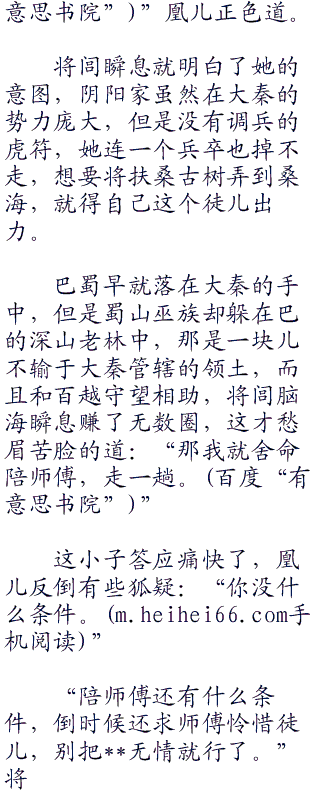 意思书院”)”凰儿正色道。
将闾瞬息就明白了她的
意图，阴阳家虽然在大秦的
势力庞大，但是没有调兵的
虎符，她连一个兵卒也掉不
走，想要将扶桑古树弄到桑
海，就得自己这个徒儿出
力。
巴蜀早就落在大秦的手
中，但是蜀山巫族却躲在巴
的深山老林中，那是一块儿
不输于大秦管辖的领土，而
且和百越守望相助，将闾脑
海瞬息赚了无数圈，这才愁
眉苦脸的道：“那我就舍命
陪师傅，走一趟。(百度“有
意思书院”)”
这小子答应痛快了，凰
儿反倒有些狐疑：“你没什
么条件。(m.heihei66.com手
机阅读)”
“陪师傅还有什么条
件，倒时候还求师傅怜惜徒
儿，别把**无情就行了。”
将